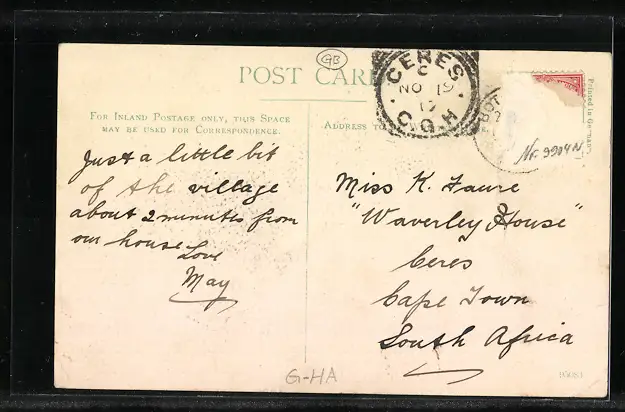 GB
POST CARD
CERES
C
NO 19
C.G.H
Nr. 9904N
Printed in Germany
FOR INLAND POSTAGE ONLY, THIS SPACE
MAY BE USED FOR CORRESPONDENCE.
ADDRESS TO
Just a little bit
of the village
about 2 minutes from
our house
Love
May
Miss K. Faure
"Waverley House"
Ceres
Cape Town
South Africa
G-HA